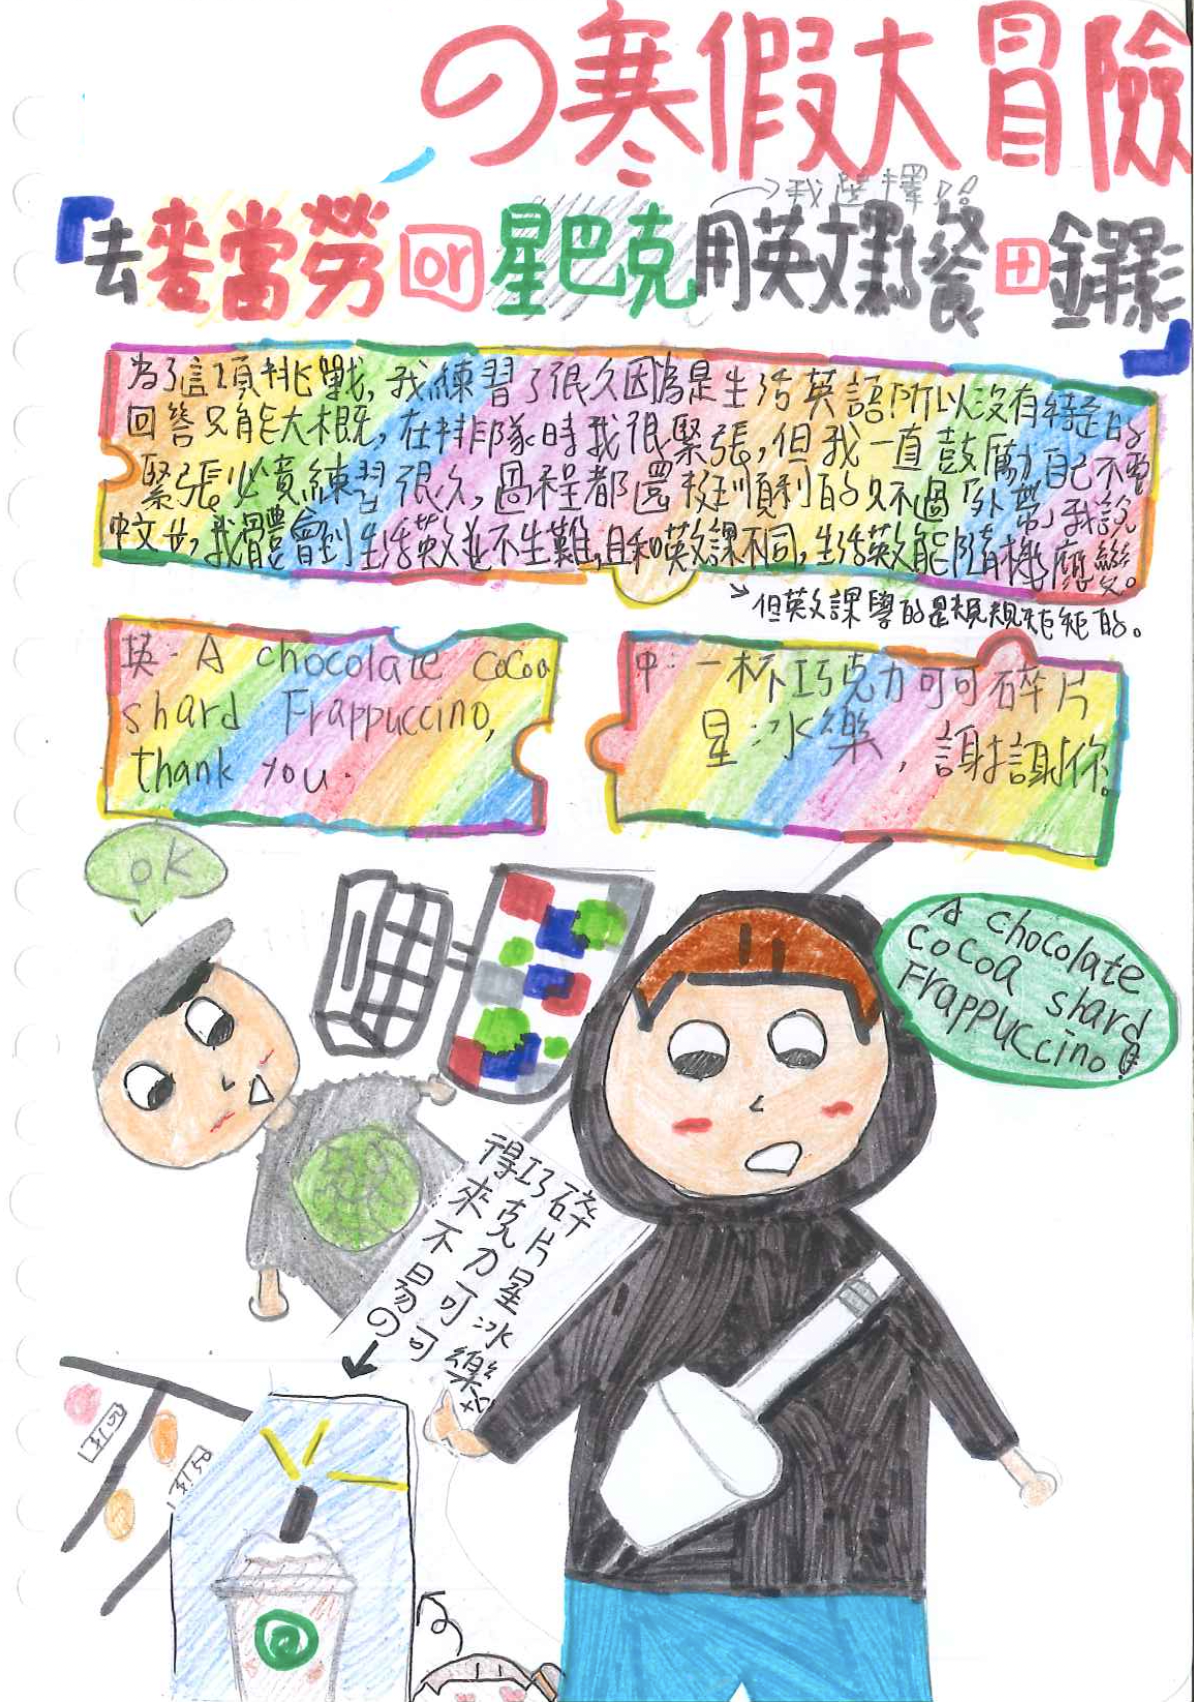 の寒假大冒險
→我選擇
『去麥當勞or星巴克用英文點餐+錄影』
為了這項挑戰,我練習了很久因為是生活英語所以沒有特定的
回答只能大概,在排隊時我很緊張,但我一直鼓勵自己不要
緊張必竟練習很久,過程都還挺順利的只不過「外帶」我說
中文せ,我體會到生活英文並不生難,且和英文課不同,生活英文能隨機應變。
→但英文課學的是規規矩矩的。
英: A chocolate cocoa
shard Frappuccino,
thank you.
中: 一杯巧克力可可碎片
星冰樂,謝謝你。
OK
A chocolate
cocoa shard
Frappuccino!
得來不易の
巧克力可可
碎片星冰樂